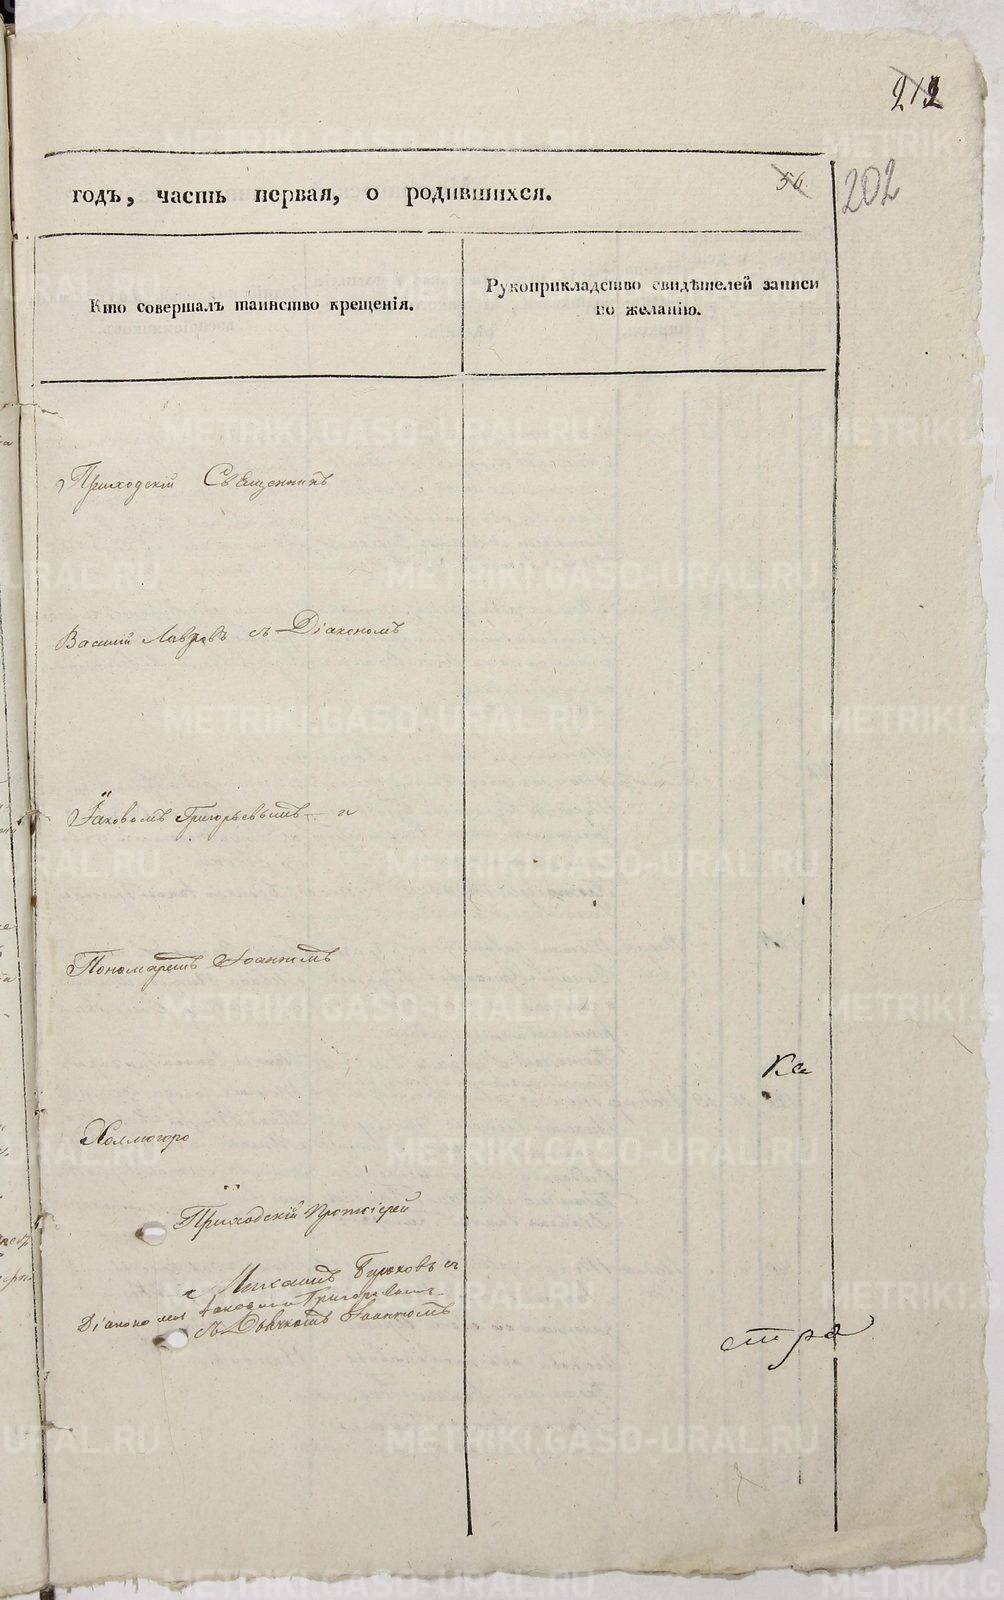 212
годъ, часть первая, о родившихся.
56
202
Кто совершалъ таинство крещенія.
Рукоприкладство свидѣтелей записи
по желанію.
Приходскій Священникъ
Василій Лавровъ съ Діакономъ
Іаковомъ Григорьевымъ и
Пономаремъ Іоанномъ
Ка
Холмогоро
Приходскій Протоіерей
Михаилъ Бирюковъ съ
Діакономъ Іаковомъ Григорьевымъ
съ Дьячкомъ Іоанномъ
стра
METRIKI.GASO-URAL.RU